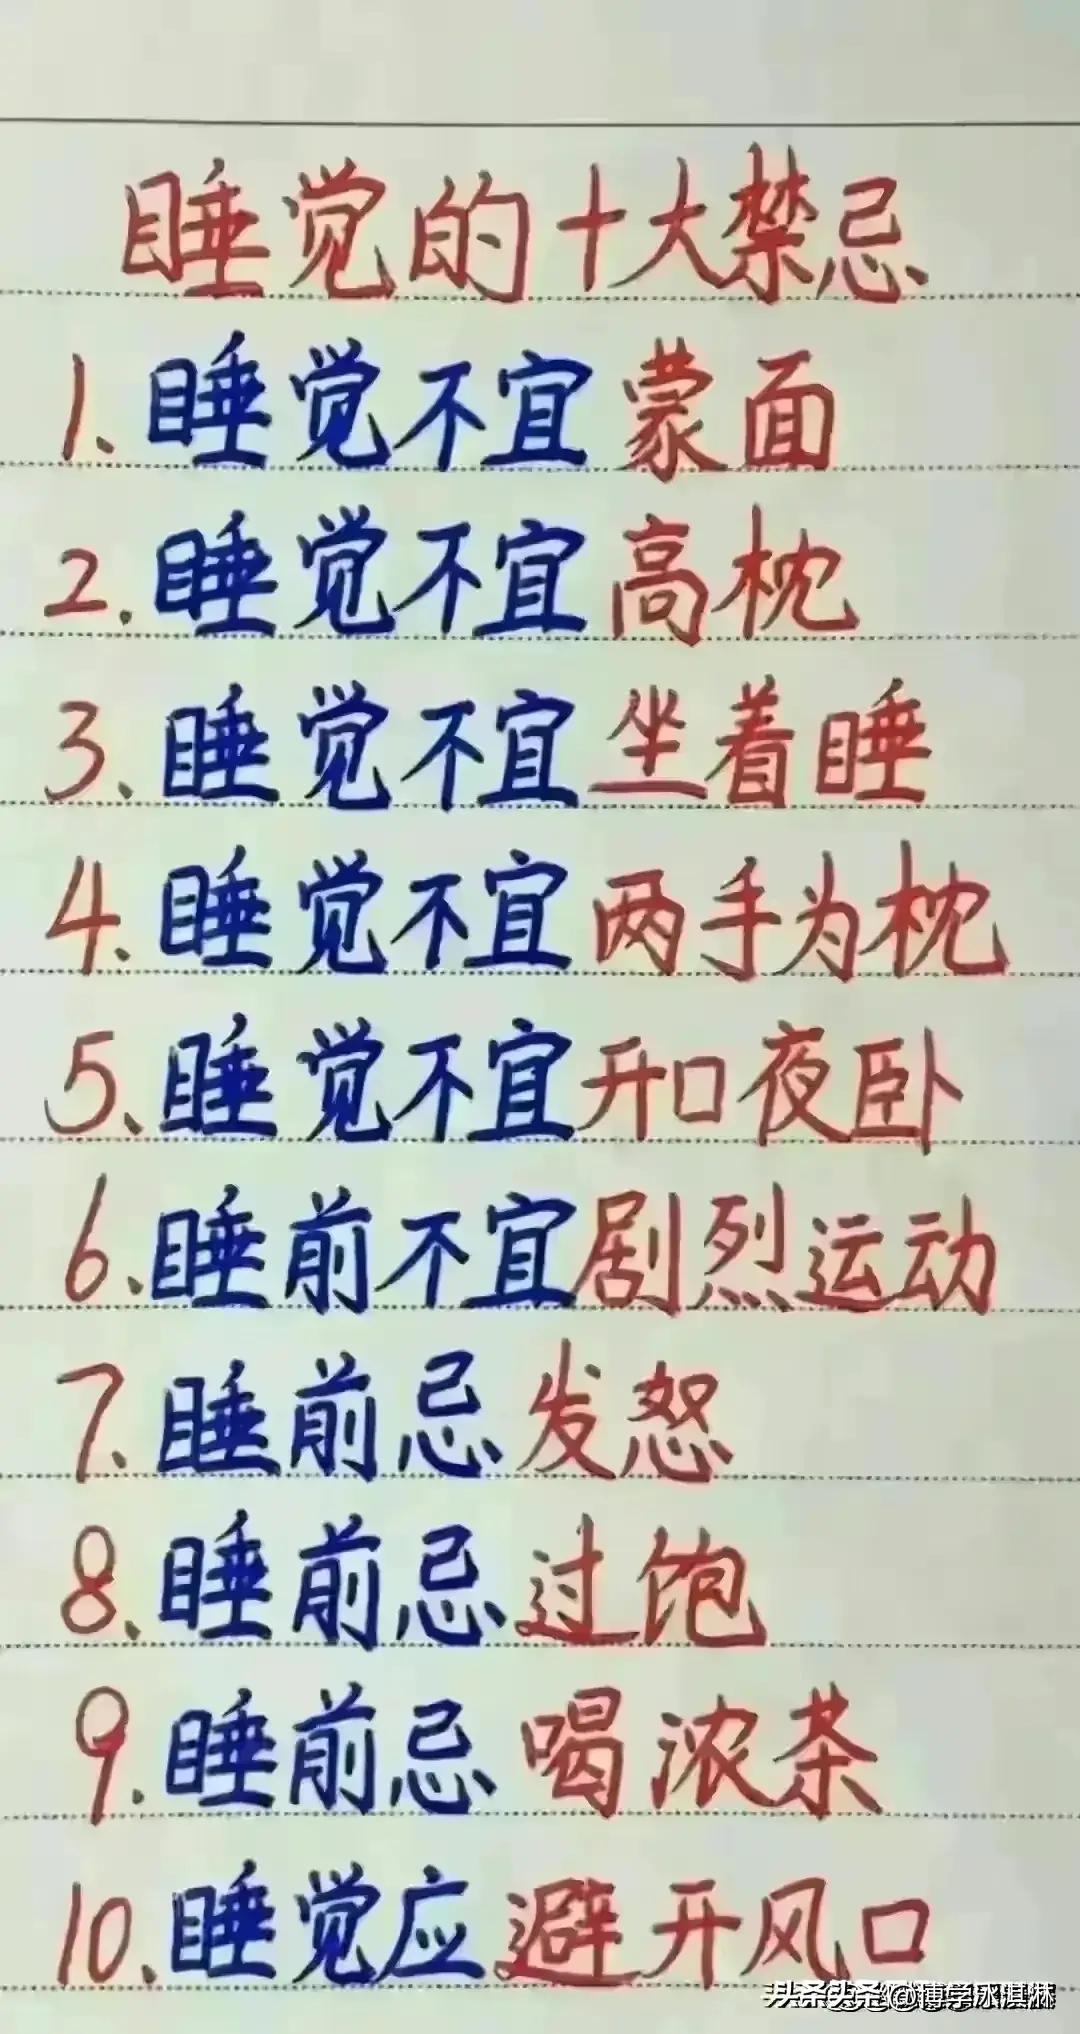 睡觉的十大禁忌
1、睡觉不宜蒙面
2.睡觉不宜高枕
3、睡觉不宜坐着睡
4、睡觉不宜两手为枕
5、睡觉不宜开口夜卧
6.睡前不宜剧烈运动
7、睡前忌发怒
8、睡前忌过饱
9.睡前忌喝浓茶
10、睡觉应避开风口
头条@博学冰淇淋